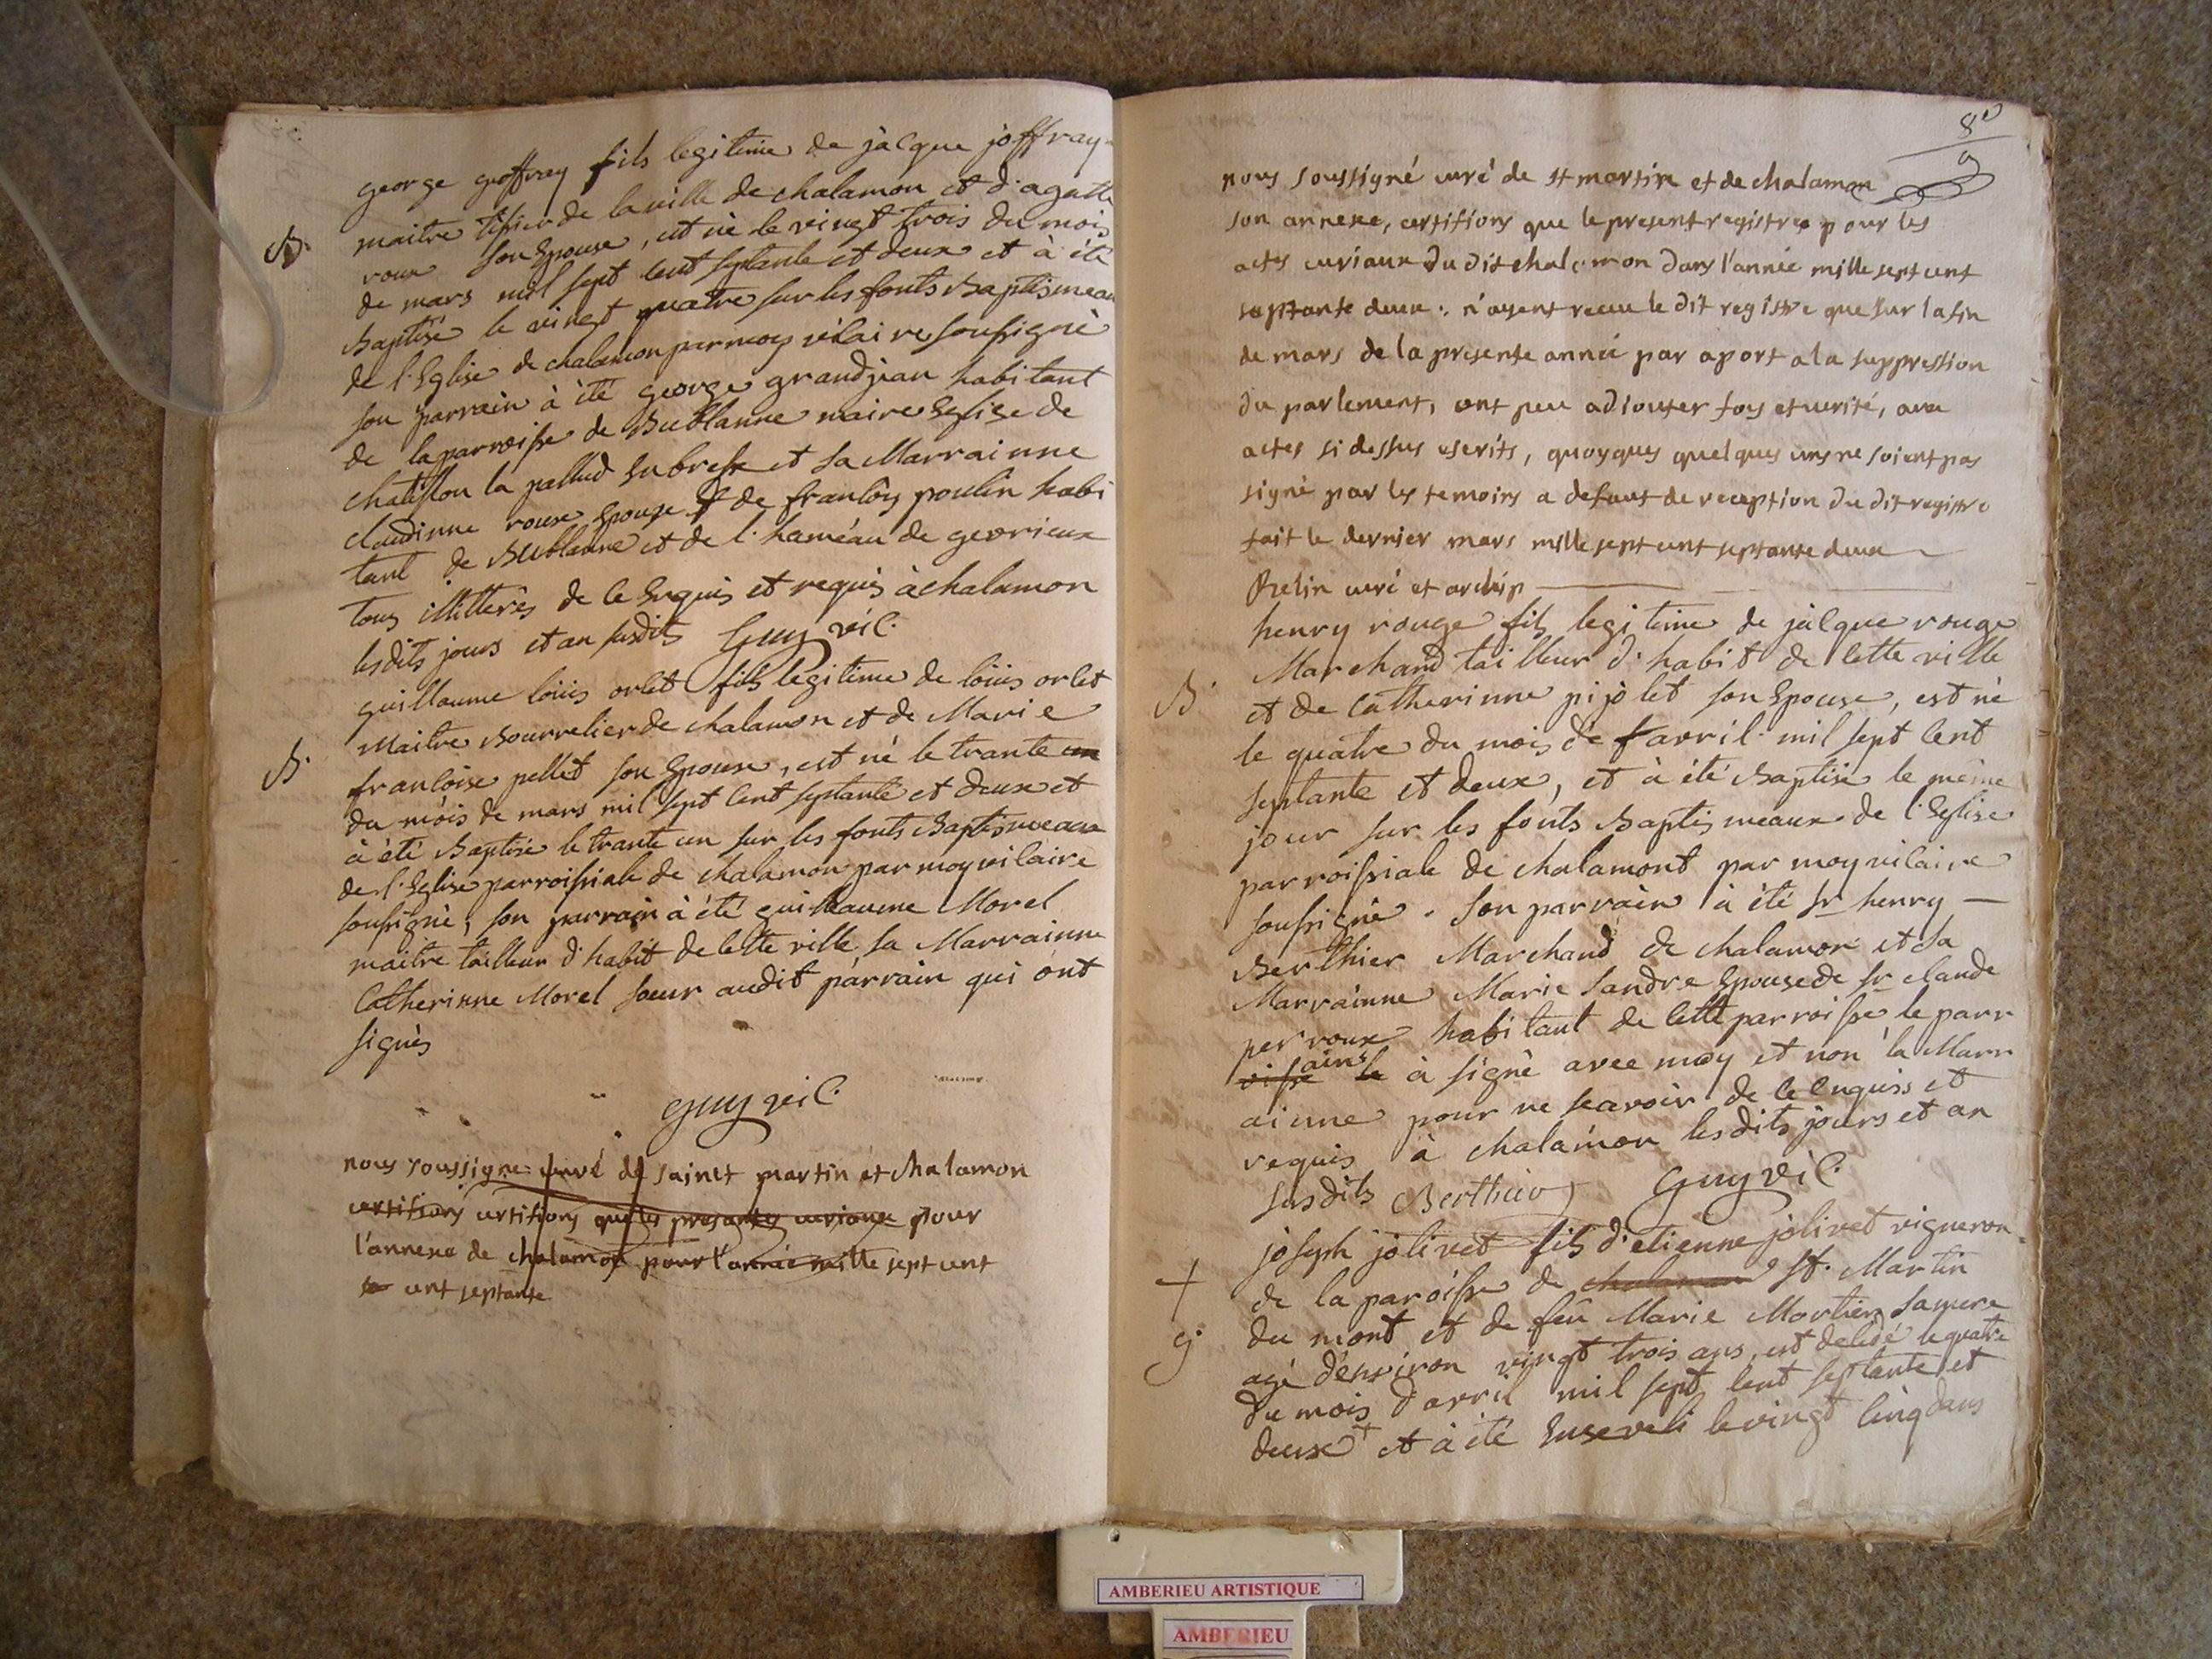 george geoffrey fils legitime de jàcque jòffray
maitre tissier de la ville de chalamon et d'agathe
B.
roux son Epouse, est nè le vingt trois du mois
de mars mil sept cent septante et deux et à été
Baptisé le vingt quatre sur les fonts Baptismeaux
de l'Eglise de chalamon par moy vicaire soussignè
son parrain à été george grandjean habitant
de la parroisse de Bublanne maire Eglise de
chatillon la pallud En bresse et sa Marrainne
claudinne roux Epouse de francòis poulin habi
tant de Bublanne et de l'haméau de gevrieux
tous illitterès de ce Enquis et requis à chalamon
lesdits jours et an susdits Guy vic.
guillaume loüis orlet fils legitime de loüis orlet
Maitre Bourrelier de chalamon et de Marie
B.
francòise pellet son Epouse, est né le trante un
du mòis de mars mil sept cent septante et deux et
à été Baptisé le trante un sur les fonts Baptismeaux
de l'Eglise parroissiale de chalamon par moy vicaire
soussignè; son parrain à été guilleaume Morel
maitre tailleur d'habit de cette ville sa Marrainne
Catherinne Morel sœur audit pàrrain qui ont
signès
Guy vic.
nous soussigne curé de sainct martin et chalamon
certifions certifions que les presantes curiaux pour
l'annexe de chalamon pour l'année mille sept cent
cent septante
80
9
nous soussigné curé de st martin et de chalamon
son annexe, certifions que le present registre pour les
actes curiaux du dit chalamon dans l'année mille sept cent
septante deux: n'ayent receu le dit registre que sur la fin
de mars de la presente année par aport a la suppression
du parlement, ont peu adiouter foy et verité, aux
actes si dessus escrits, quoyques quelques uns ne soient pas
signé par les temoins a defaut de reception du dit registre
fait le dernier mars mille sept cent septante deux
Belin curé et archip
henry rouge fils legitime de jàcque rouge
Marchand tailleur d'habit de cette ville
B.
et de Catherinne pijòlet son Epouse, est nè
le quatre du mois de avril mil sept cent
septante et deux, et à été Baptisé le même
jour sur les fonts Baptismeaux de l'Eglise
parroissiale de chalamont par moy vicaire
soussignè. Son parrain à été sr henry
Berthier Marchand de chalamon et sa
Marrainne Marie Sandre Epouse de sr claude
perroux habitant de cette parroisse le parr
ain à signè avec moy et non la Marr
ainne pour ne scavoir de ce Enquiss et
requis à chalamon lesdits jours et an
susdits Berthier Guy vic.
jòseph jòlivet fils d'etienne jòlivet vigneron
+
de la paròisse de chalamon st. Martin
du mont et de feu Marie Mortier sa mere
g.
agé d'environ vingt trois ans, est decèdé le quatre
du mois d'avril mil sept cent septante et
deux + et à été Enseveli le vingt cinq dans
AMBERIEU ARTISTIQUE
AMBERIEU